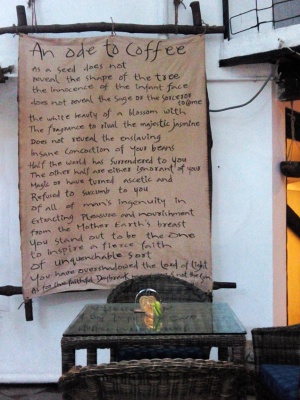 An ode to coffee
As a seed does not
reveal the shape of the tree
The innocence of the infant face
does not reveal the sage or the sorcerer
to come
the white beauty of a blossom with
The fragrance to rival the majestic jasmine
Does not reveal the enslaving
Insane concoction of your beans
Half the world has surrendered to you
The other half are either ignorant of your
Magic or have turned ascetic and
Refused to succumb to you
of all of man's ingenuity in
Extracting Pleasure and nourishment
from the Mother Earth's breast
You stand out to be the one
to inspire a fierce faith
of unquenchable sort
You have overshadowed the Lord of light
As for the faithful Daybreak not the